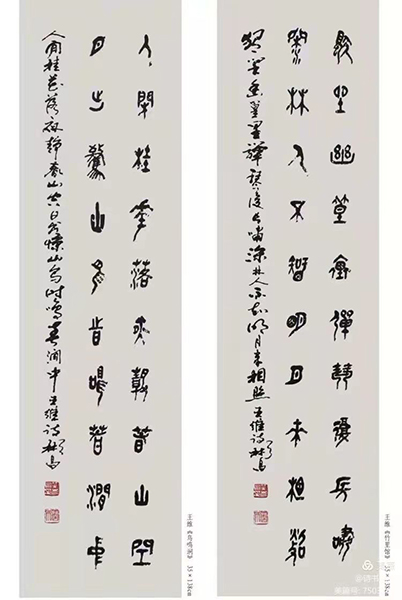 獨坐幽篁裏彈琴復長嘯
深林人不知明月來相照
獨坐幽篁里彈琴復長嘯深林人不知明月來相照 王維詩
王维《竹里馆》 35×138cm
人閒桂華落夜靜春山空
月出驚山鳥時鳴春澗中
人閒桂花落夜靜春山空月出驚山鳥時鳴春澗中 王維詩
王维《鸟鸣涧》 35×138cm